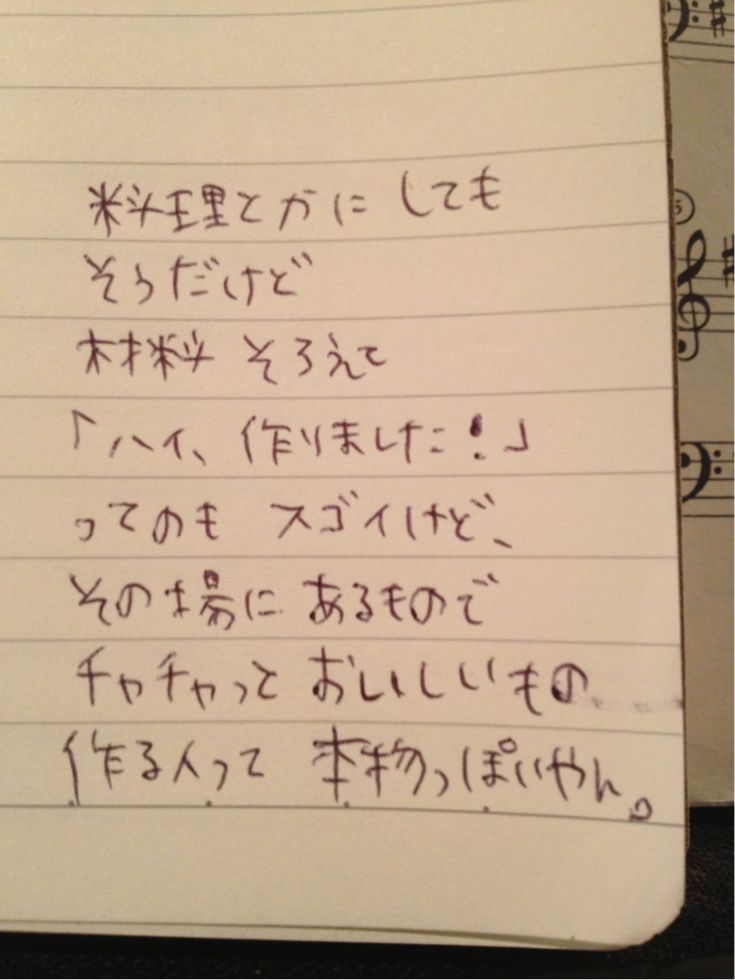 料理とかにしても
そうだけど
材料 そろえて
「ハイ、作りました!」
ってのも スゴイけど、
その場に あるもので
チャチャっと おいしいもの
作る人って 本物っぽいやん。
5